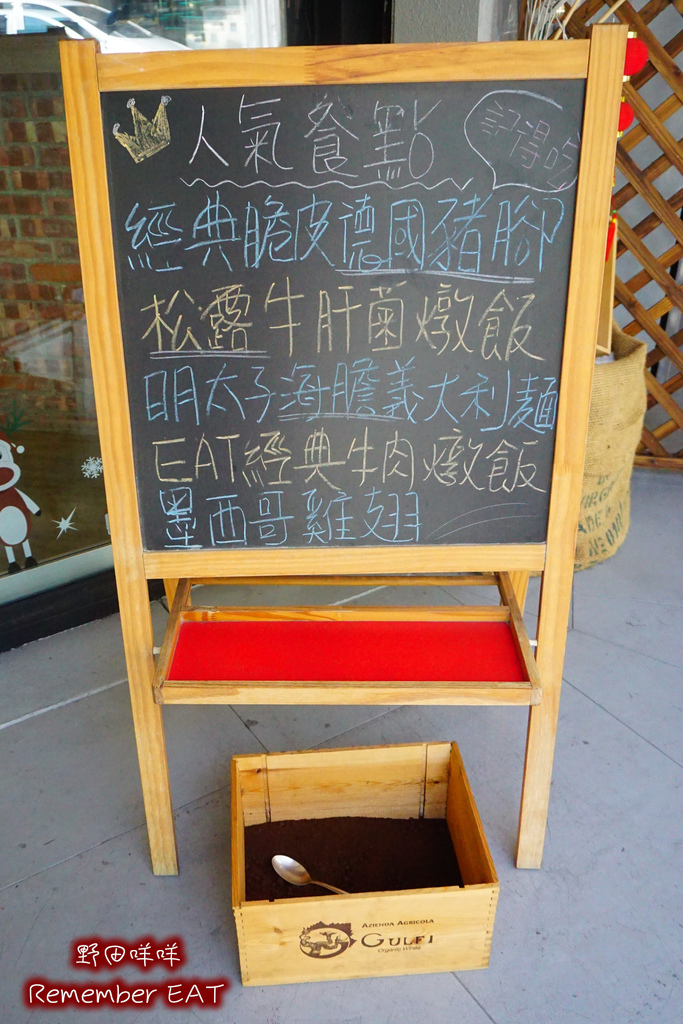 人氣餐點
記得吃
經典脆皮德國豬腳
松露牛肝菌燉飯
明太子海膽義大利麵
EAT經典牛肉燉飯
墨西哥雞翅
AZIENDA AGRICOLA
GULFI
Organic Wines
野田咩咩
Remember EAT